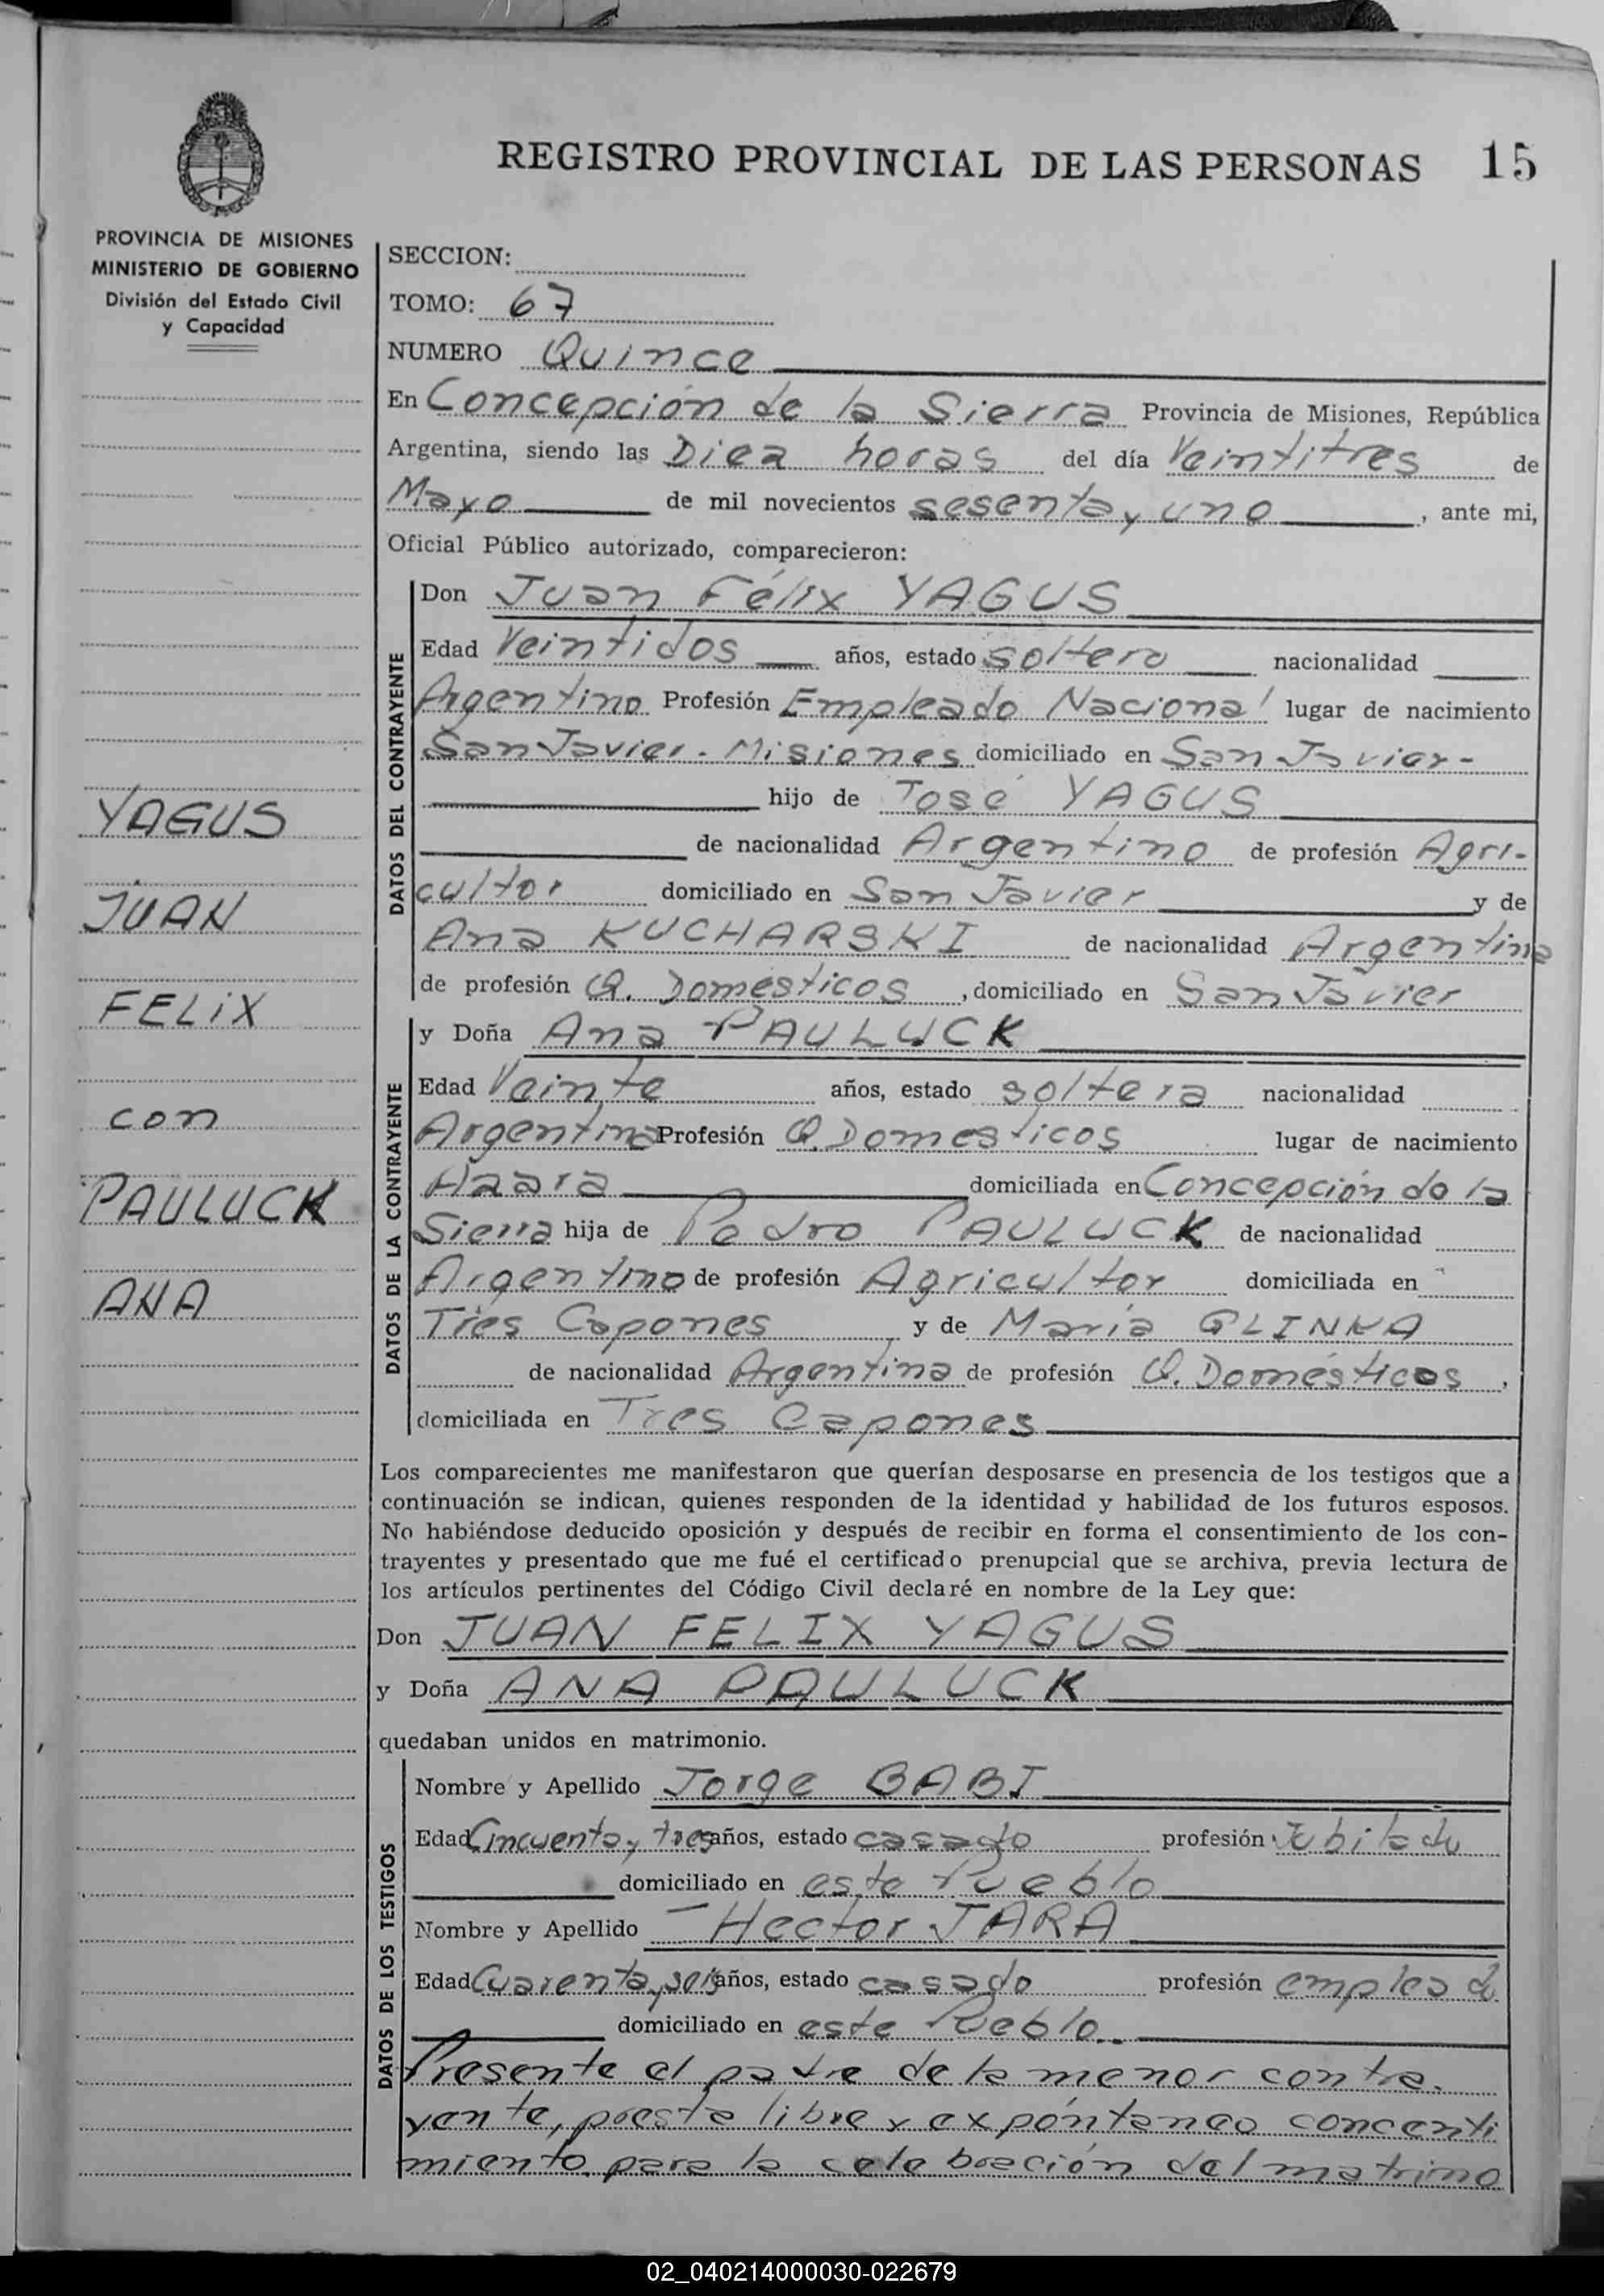 REGISTRO PROVINCIAL DE LAS PERSONAS 15
PROVINCIA DE MISIONES
MINISTERIO DE GOBIERNO
División del Estado Civil
y Capacidad
YAGUS
JUAN
FELIX
con
PAULUCK
ANA
SECCION:
TOMO: 67
NUMERO Quince
En Concepción de la Sierra Provincia de Misiones, República
Argentina, siendo las Diez horas del día Veintitres de
Mayo de mil novecientos sesenta y uno, ante mi,
Oficial Público autorizado, comparecieron:
DATOS DEL CONTRAYENTE
Don Juan Félix YAGUS
Edad Veintidos años, estado soltero nacionalidad
Argentino Profesión Empleado Nacional lugar de nacimiento
San Javier - Misiones domiciliado en San Javier-
hijo de José YAGUS
de nacionalidad Argentino de profesión Agri-
cultor domiciliado en San Javier y de
Ana KUCHARSKI de nacionalidad Argentina
de profesión Q. Domésticos, domiciliado en San Javier
DATOS DE LA CONTRAYENTE
y Doña Ana PAULUCK
Edad Veinte años, estado soltera nacionalidad
Argentina Profesión Q. Domesticos lugar de nacimiento
Azara domiciliada en Concepción de la
Sierra hija de Pedro PAULUCK de nacionalidad
Argentino de profesión Agricultor domiciliada en
Tres Capones y de María GLINKA
de nacionalidad Argentina de profesión Q. Domésticos,
domiciliada en Tres Capones
Los comparecientes me manifestaron que querían desposarse en presencia de los testigos que a
continuación se indican, quienes responden de la identidad y habilidad de los futuros esposos.
No habiéndose deducido oposición y después de recibir en forma el consentimiento de los con-
trayentes y presentado que me fué el certificado prenupcial que se archiva, previa lectura de
los artículos pertinentes del Código Civil declaré en nombre de la Ley que:
Don JUAN FELIX YAGUS
y Doña ANA PAULUCK
quedaban unidos en matrimonio.
DATOS DE LOS TESTIGOS
Nombre y Apellido Jorge BABI
Edad Cincuenta y tres años, estado casado profesión Jubilado
domiciliado en este Pueblo
Nombre y Apellido Hector JARA
Edad Cuarenta y seis años, estado casado profesión empleado
domiciliado en este Pueblo..
Presente el padre de la menor contra-
yente, presta libre y expóntaneo concenti
miento para la celebración del matrimo
02_040214000030-022679